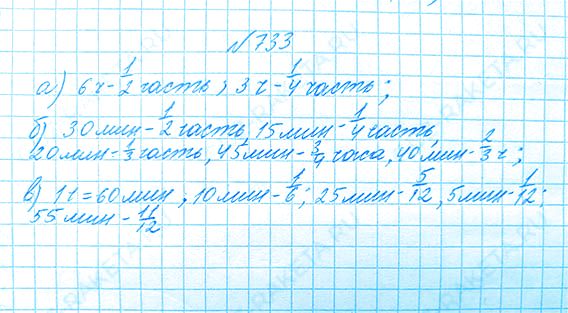 №733
а) 6 ч - 1/2 часть, 3 ч - 1/4 часть;
б) 30 мин - 1/2 часть, 15 мин - 1/4 часть,
20 мин - 1/3 часть, 45 мин - 3/4 часа, 40 мин - 2/3 ч;
в) 1 ч = 60 мин, 10 мин - 1/6; 25 мин - 5/12, 5 мин - 1/12;
55 мин - 11/12